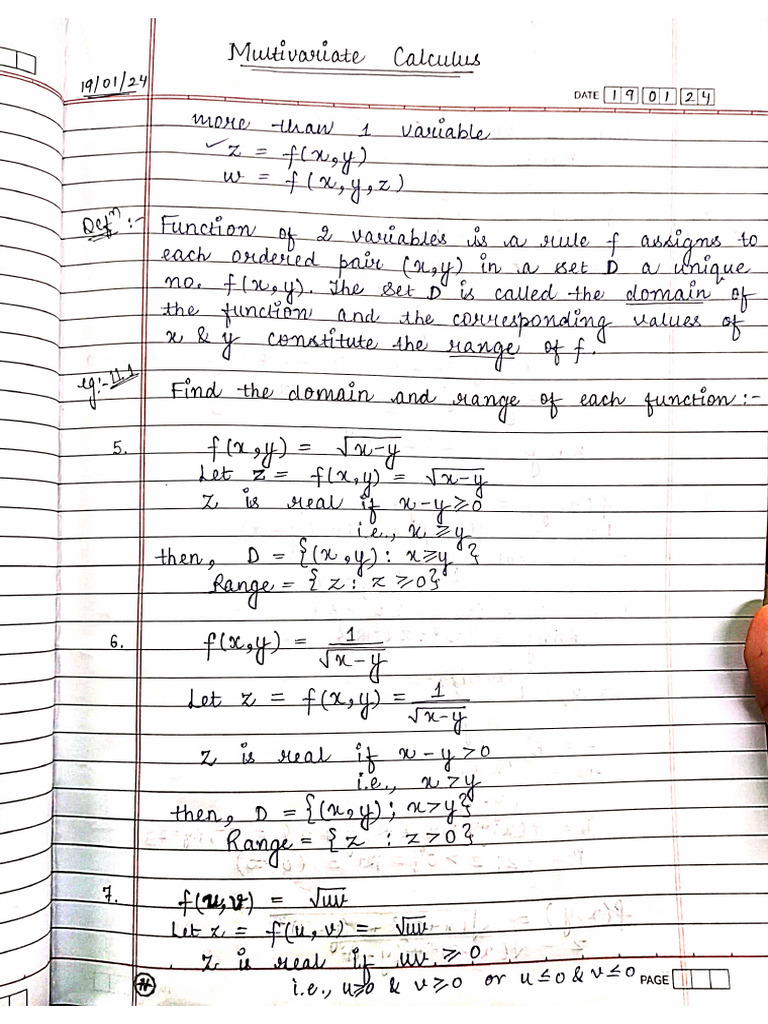 Multivariate Calculus
19/01/24
DATE 19 01 24
more than 1 variable
✓ z = f(x,y)
w = f(x,y,z)
Defⁿ :- Function of 2 variables is a rule f assigns to
each ordered pair (x,y) in a set D a unique
no. f(x,y). The set D is called the domain of
the function and the corresponding values of
x & y constitute the range of f.
eg:- 11.1 Find the domain and range of each function :-
5. f(x,y) = √x-y
Let z = f(x,y) = √x-y
z is real if x-y ≥ 0
i.e., x ≥ y
then, D = {(x,y) : x≥y}
Range = { z : z ≥ 0}
6. f(x,y) = 1/√x-y
Let z = f(x,y) = 1/√x-y
z is real if x-y > 0
i.e., x > y
then, D = {(x,y) ; x>y}
Range = { z : z > 0}
7. f(u,v) = √uv
Let z = f(u,v) = √uv
z is real if uv ≥ 0
i.e., u≥0 & v ≥ 0 or u ≤ 0 & v ≤ 0
PAGE